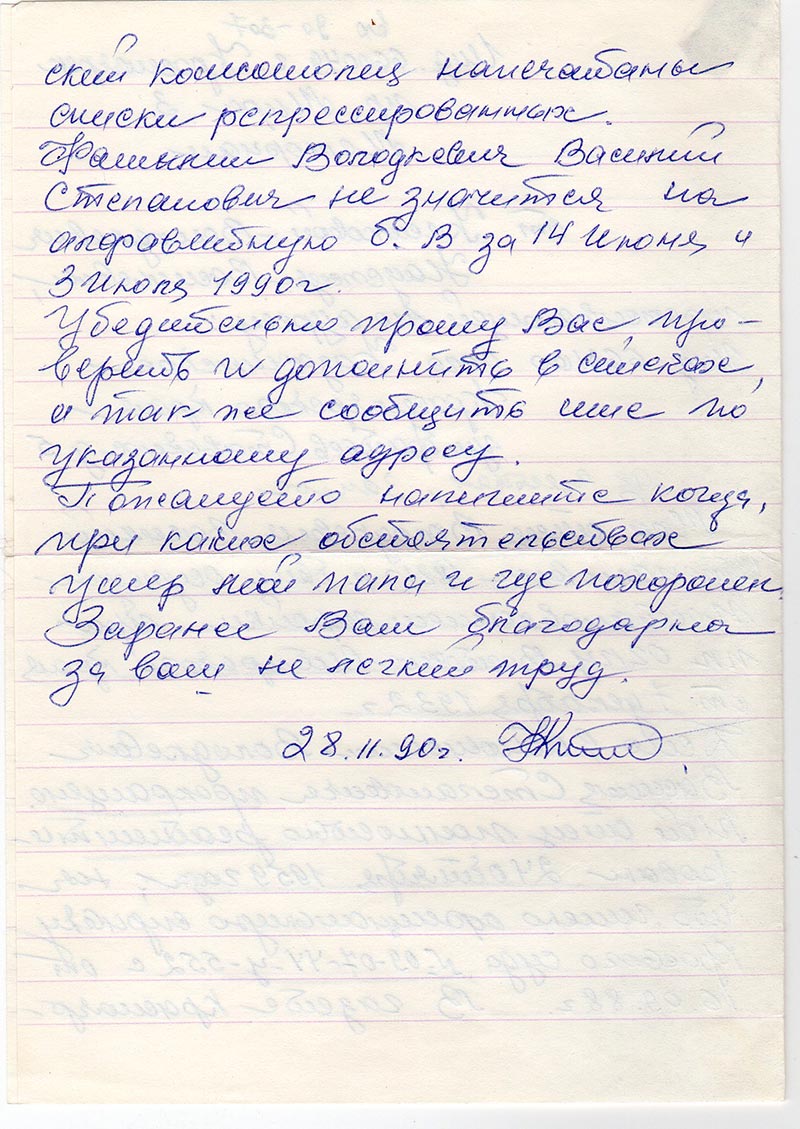 ский комсомолец напечатаны
списки репрессированных.
Фамилии Володкевич Василий
Степанович не значится на
алфавитную б. В за 14 Июня и
3 Июля 1990г.
Убедительно прошу Вас про-
верить и дополнить в списках,
а так же сообщить мне по
указанному адресу.
Пожалуйсто напишите когда,
при каких обстоятельствах
умер мой папа и где похоронен.
Заранее Вам благодарна
за ваш не легкий труд.
28.11.90г.